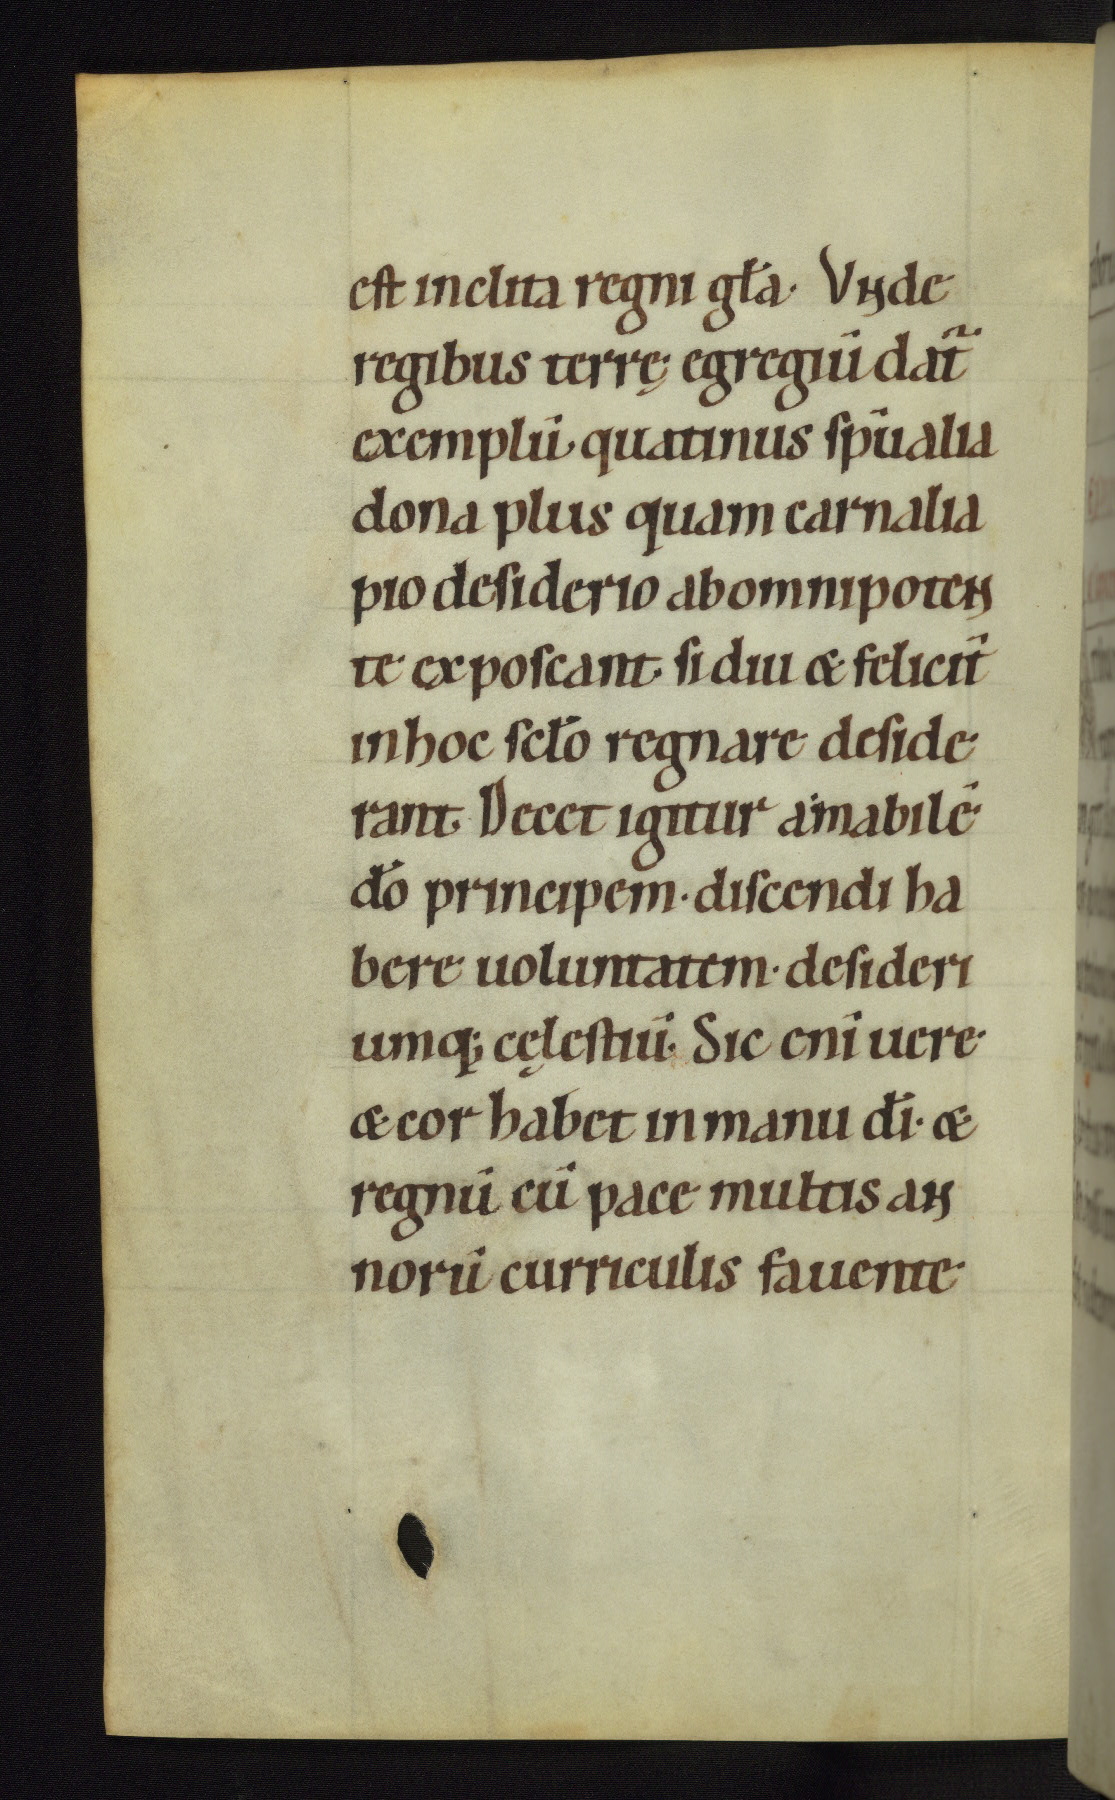 est inclita regni gła. Vnde
regibus terrę egregiū dat̄
exemplū. quatinus sp̄ualia
dona plus quam carnalia
pio desiderio abomnipoten
te exposcant. si diu & felicit̄
inhoc scło regnare deside
rant. Decet igitur amabilē
dō principem. discendi ha
bere uoluntatem. desideri
umq; cęlestiū. Sic enī uere
& cor habet inmanu dī. &
regnū cū pace multis an
norū curriculis fauente